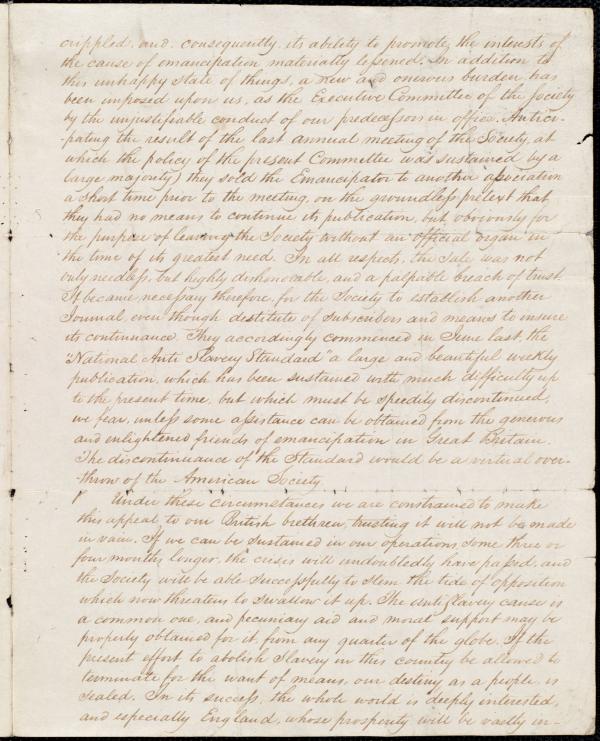 crippled, and, consequently, its ability to promote the interests of
the cause of emancipation materially lessened. In addition to
this unhappy state of things, a new and onerous burden has
been imposed upon us, as the Executive Committee of the Society
by the unjustifiable conduct of our predecessors in office. Antici-
-pating the result of the last annual meeting of the Society, at
which the policy of the present Committee was sustained by a
large majority, they sold the Emancipator to another association
a short time prior to the meeting, on the groundless pretext that
they had no means to continue its publication, but obviously for
the purpose of leaving the Society without an official organ in
the time of its greatest need. In all respects, the sale was not
only needless, but highly dishonorable, and a palpable breach of trust.
It became necessary therefore, for the Society to establish another
Journal, even though destitute of subscribers and means to insure
its continuance. They accordingly commenced in June last, the
"National Anti Slavery Standard" a large and beautiful weekly
publication, which has been sustained with much difficulty up
to the present time, but which must be speedily discontinued,
we fear, unless some assistance can be obtained from the generous
and enlightened friends of emancipation in Great Britain.
The discontinuance of the Standard would be a virtual over-
throw of the American Society.
Under these circumstances we are constrained to make
this appeal to our British brethren, trusting it will not be made
in vain. If we can be sustained in our operations some three or
four months longer, the crisis will undoubtedly have passed, and
the Society will be able successfully to stem the tide of opposition
which now threatens to swallow it up. The anti Slavery cause is
a common one, and pecuniary aid and moral support may be
properly obtained for it, from any quarter of the globe. If the
present effort to abolish Slavery in this country be allowed to
terminate for the want of means, our destiny as a people is
sealed. In its success, the whole world is deeply interested,
and especially England, whose prosperity will be vastly in-